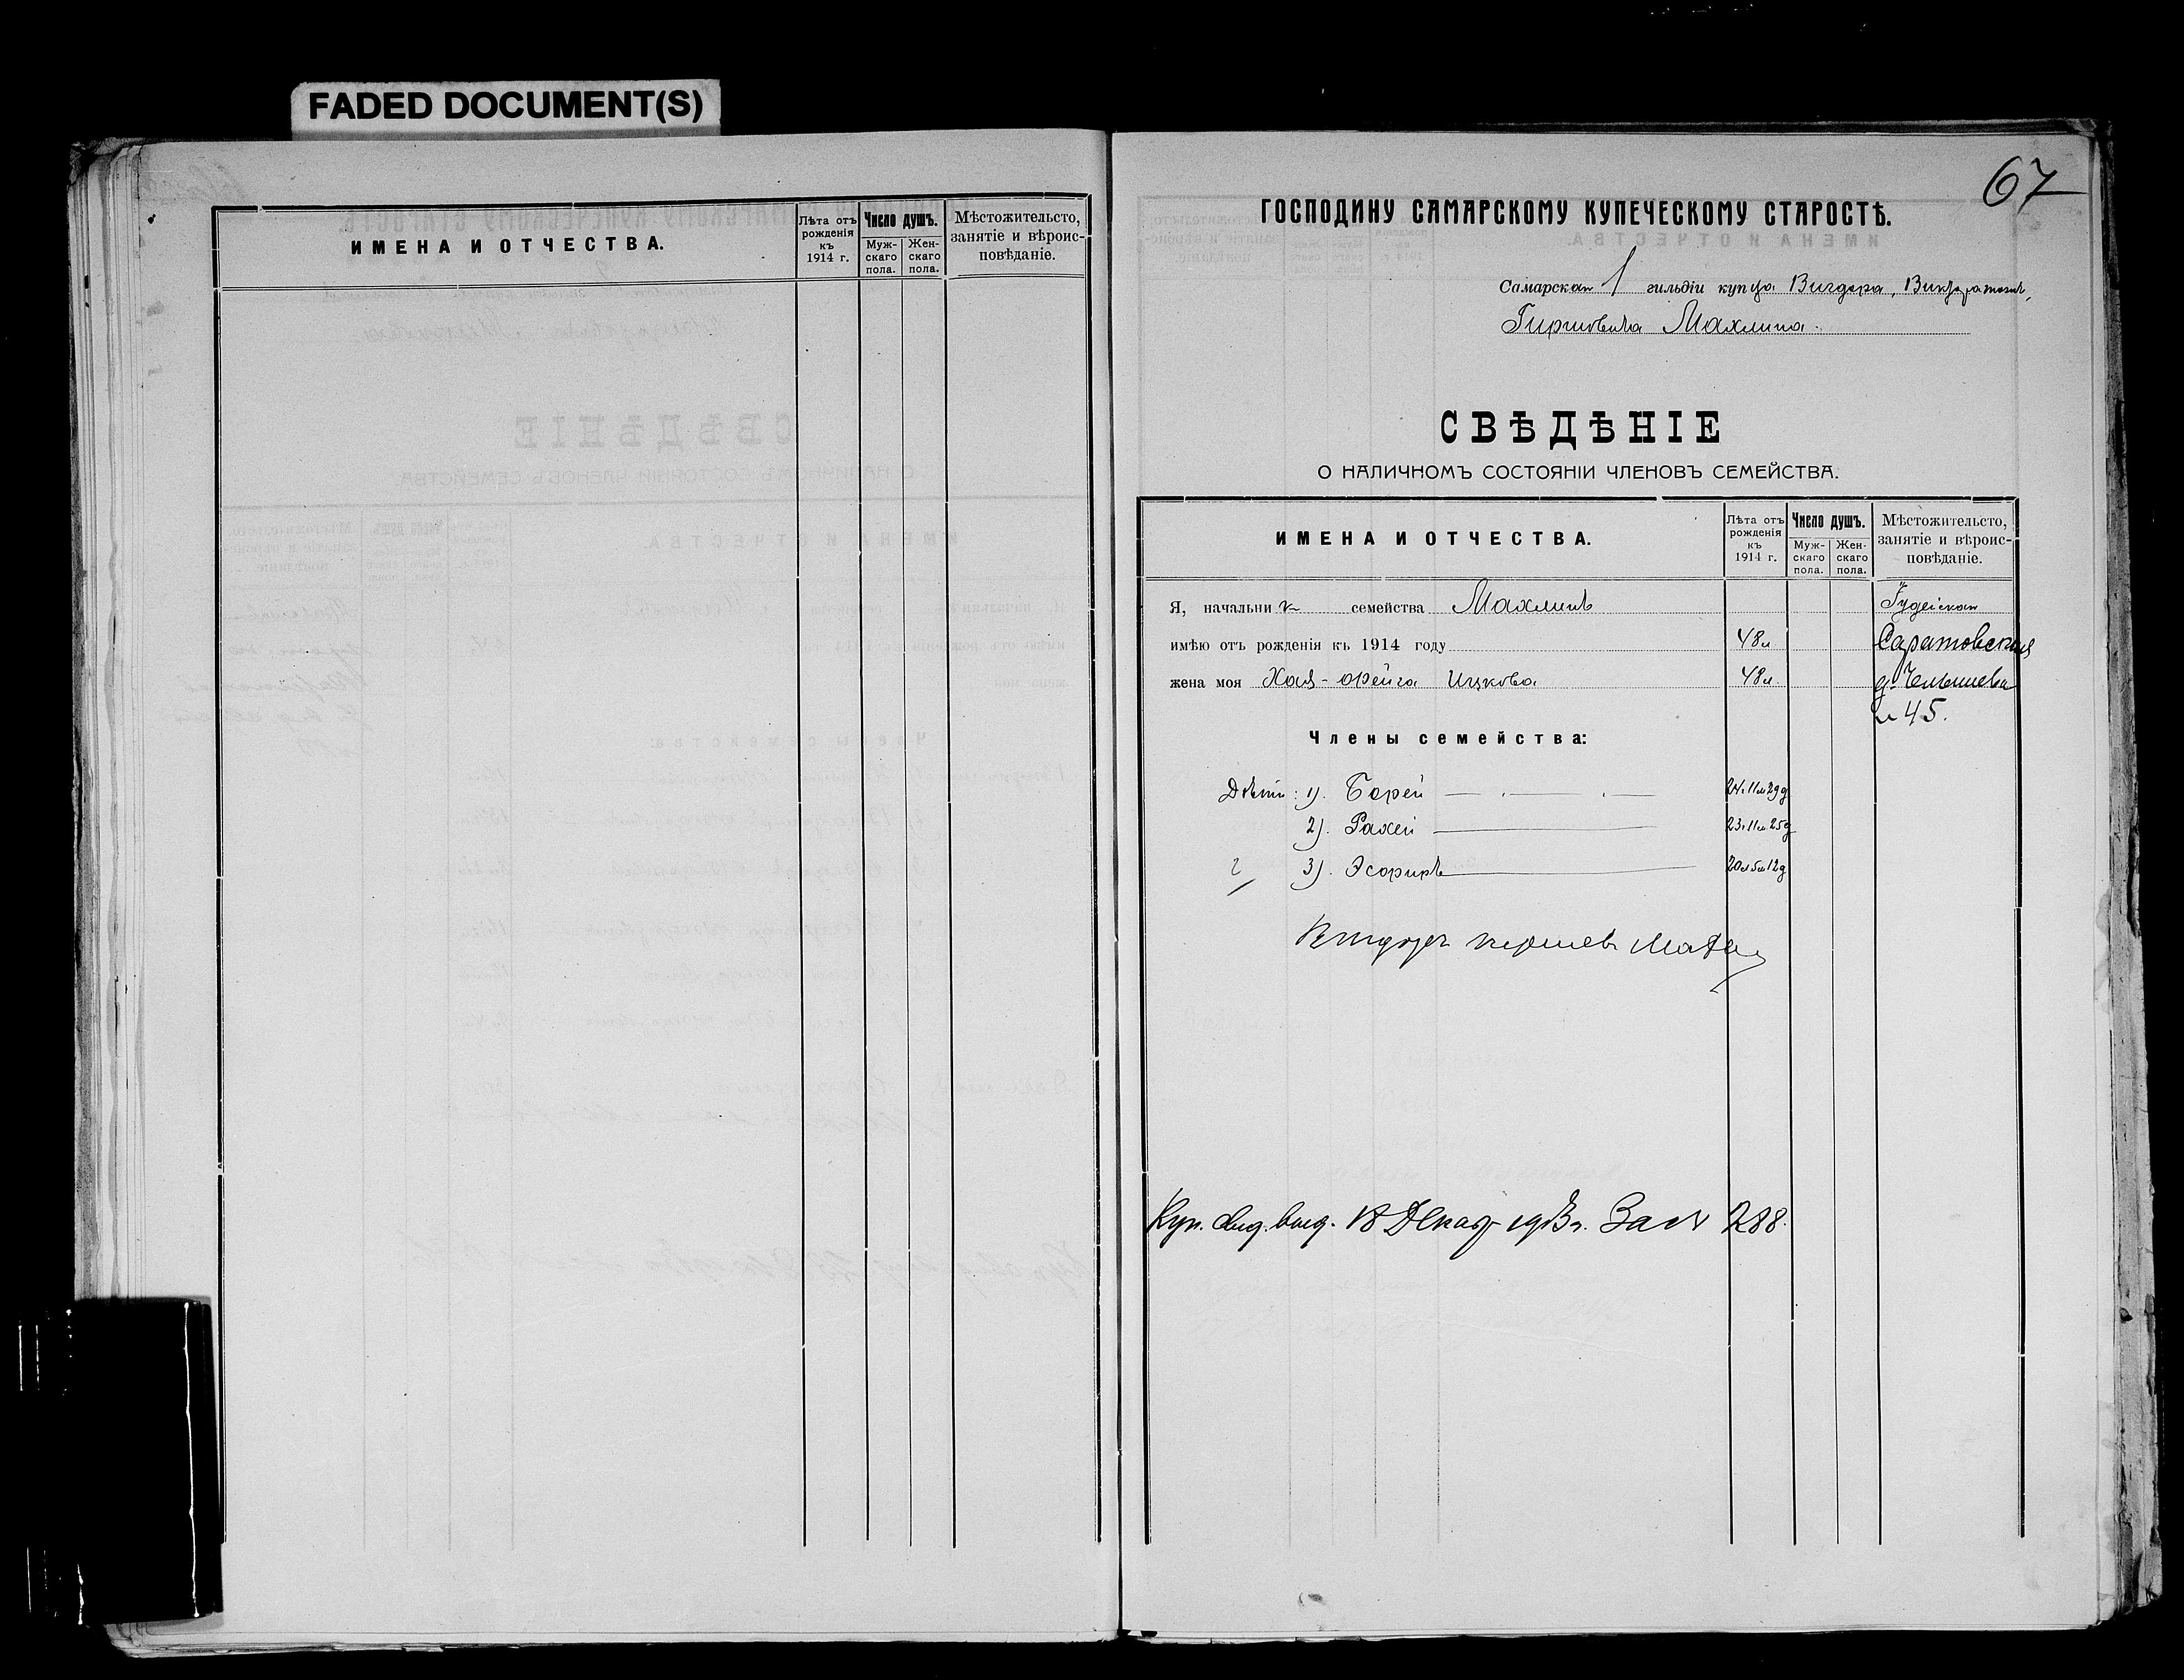 FADED DOCUMENT(S)
ИМЕНА И ОТЧЕСТВА.
Лѣта отъ рожденія къ 1914 г.
Число душъ.
Муж-скаго пола.
Жен-скаго пола.
Мѣстожительсто, занятіе и вѣроис-повѣданіе.
67
ГОСПОДИНУ САМАРСКОМУ КУПЕЧЕСКОМУ СТАРОСТѢ.
Самарскаго 1 гильдіи купца Вигдора,
Гиршовича Махлина.
СВѢДѢНІЕ
О НАЛИЧНОМЪ СОСТОЯНІИ ЧЛЕНОВЪ СЕМЕЙСТВА.
ИМЕНА И ОТЧЕСТВА.
Лѣта отъ рожденія къ 1914 г.
Число душъ.
Муж-скаго пола.
Жен-скаго пола.
Мѣстожительсто, занятіе и вѣроис-повѣданіе.
Я, начальникъ семейства Махлинъ Іудейская
имѣю отъ рожденія къ 1914 году 48 л Саратовская
жена моя Хая-Фейга Ицкова 48 л. д. Челышева
№ 45.
Члены семейства:
Дѣти: 1). 24 л 11 м 29 д
2). 23 л 11 м 25 д
3). 20 л 5 м 12 д
Куп. свид. выд. 18 Декаб 1913 г. За № 288.